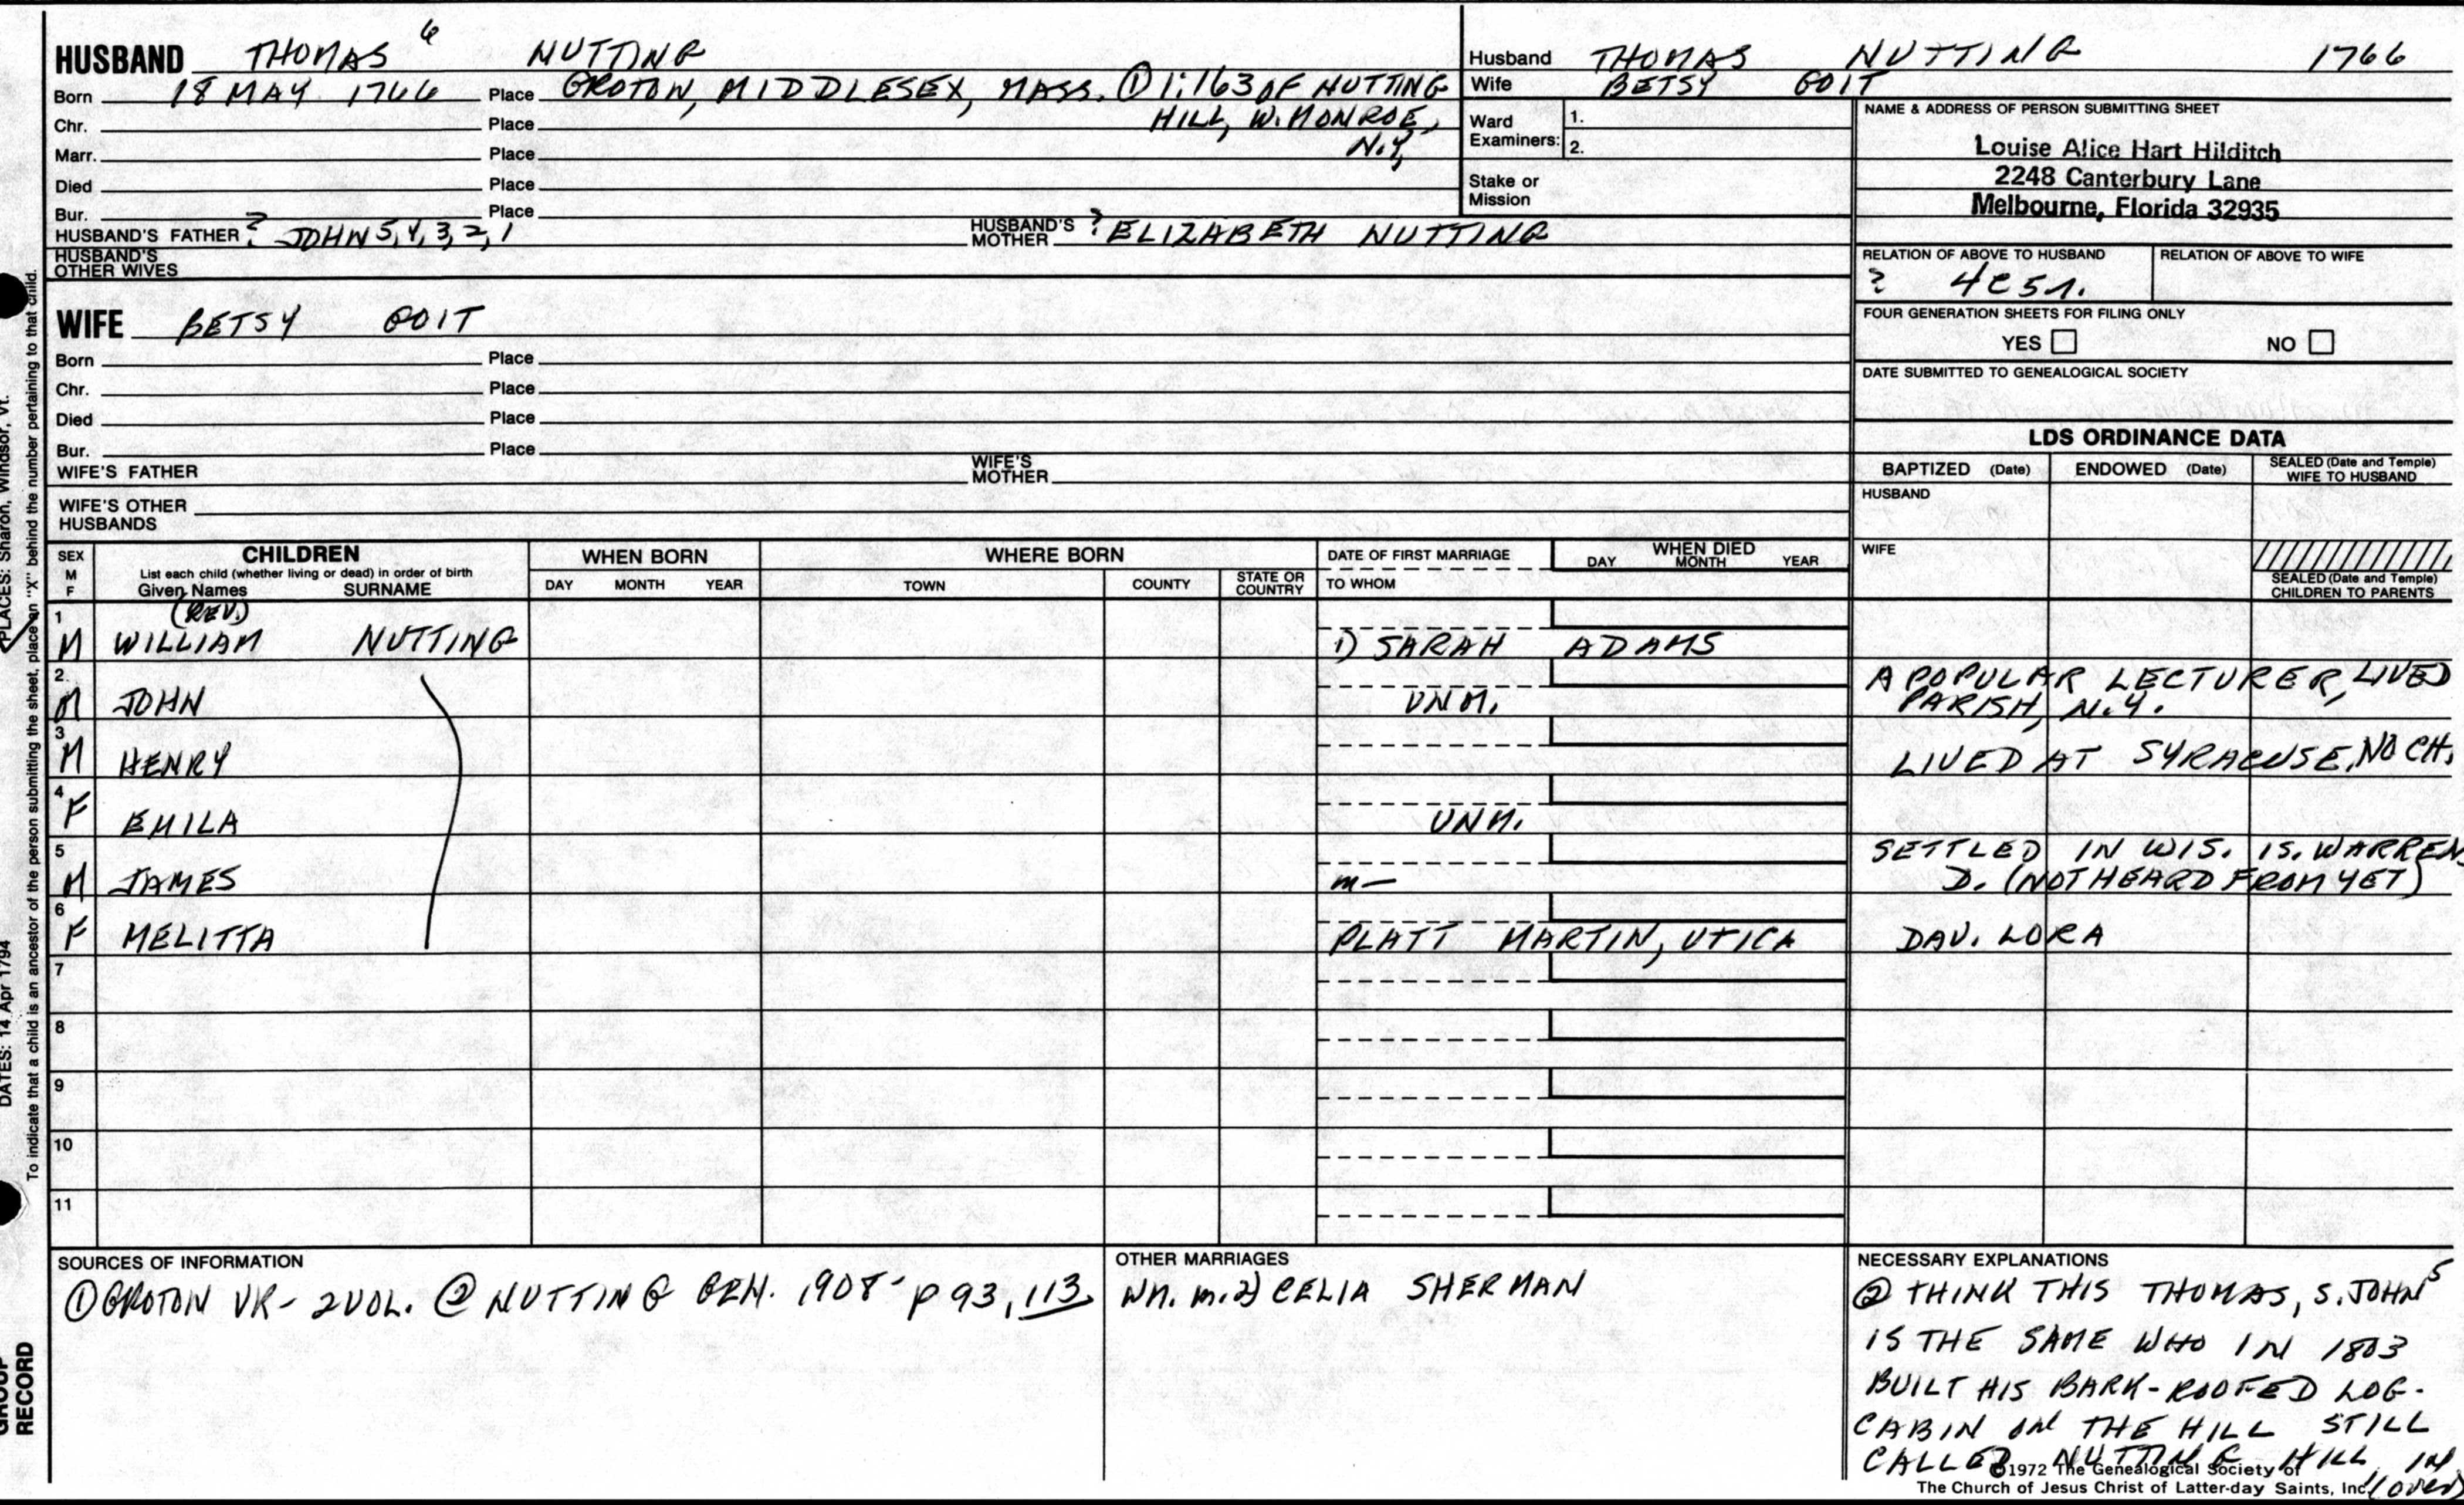 HUSBAND THOMAS 6 NUTTING
Born 18 MAY 1766 Place GROTON, MIDDLESEX, MASS. ① 1:163 OF NUTTING
Chr. Place HILL, W. MONROE,
Marr. Place N.Y,
Died Place
Bur. Place
HUSBAND'S FATHER ? JOHN 5, 4, 3, 2, 1 HUSBAND'S MOTHER ? ELIZABETH NUTTING
HUSBAND'S OTHER WIVES
Husband THOMAS NUTTING 1766
Wife BETSY GOIT
Ward Examiners: 1.
2.
Stake or Mission
NAME & ADDRESS OF PERSON SUBMITTING SHEET
Louise Alice Hart Hilditch
2248 Canterbury Lane
Melbourne, Florida 32935
RELATION OF ABOVE TO HUSBAND RELATION OF ABOVE TO WIFE
? 4C5R.
FOUR GENERATION SHEETS FOR FILING ONLY
YES NO
DATE SUBMITTED TO GENEALOGICAL SOCIETY
WIFE BETSY GOIT
Born Place
Chr. Place
Died Place
Bur. Place
WIFE'S FATHER WIFE'S MOTHER
WIFE'S OTHER HUSBANDS
LDS ORDINANCE DATA
BAPTIZED (Date) ENDOWED (Date) SEALED (Date and Temple) WIFE TO HUSBAND
HUSBAND
WIFE
SEALED (Date and Temple) CHILDREN TO PARENTS
SEX M F CHILDREN WHEN BORN WHERE BORN DATE OF FIRST MARRIAGE WHEN DIED
List each child (whether living or dead) in order of birth
Given Names SURNAME DAY MONTH YEAR TOWN COUNTY STATE OR COUNTRY TO WHOM DAY MONTH YEAR
1 (REV.)
M WILLIAM NUTTING 1) SARAH ADAMS
2
M JOHN UNM. A POPULAR LECTURER, LIVED PARISH, N.Y.
3
M HENRY LIVED AT SYRACUSE, NO CH.
4
F EMILA UNM.
5
M JAMES m— SETTLED IN WIS. IS. WARREN D. (NOT HEARD FROM YET)
6
F MELITTA PLATT MARTIN, UTICA DAU. LORA
7
8
9
10
11
SOURCES OF INFORMATION
① GROTON VR- 2 VOL. ② NUTTING GEN. 1908- p 93, 113
OTHER MARRIAGES
WM. m. 2) CELIA SHERMAN
NECESSARY EXPLANATIONS
② THINK THIS THOMAS, S. JOHN 5
IS THE SAME WHO IN 1803
BUILT HIS BARK-ROOFED LOG-
CABIN ON THE HILL STILL
CALLED NUTTING HILL IN
(over)
©1972 The Genealogical Society of
The Church of Jesus Christ of Latter-day Saints, Inc.
PLACES: Sharon, Windsor, Vt.
DATES: 14 Apr 1794
To indicate that a child is an ancestor of the person submitting the sheet, place an "X" behind the number pertaining to that child.
GROUP
RECORD